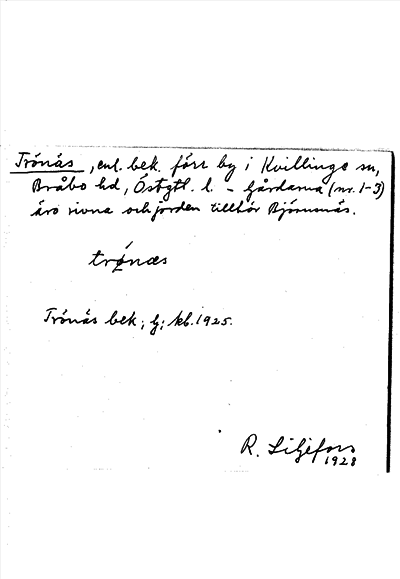 Trönäs, enl. bek. förr by i Kvillinge sn,
Bråbo hd, Östgtl. l. – Gårdarna (nr. 1-3)
äro rivna och jorden tillhör Björnsnäs.
trø̀næs
Trönäs bek; lj; kb. 1925.
R. Liljefors
1928